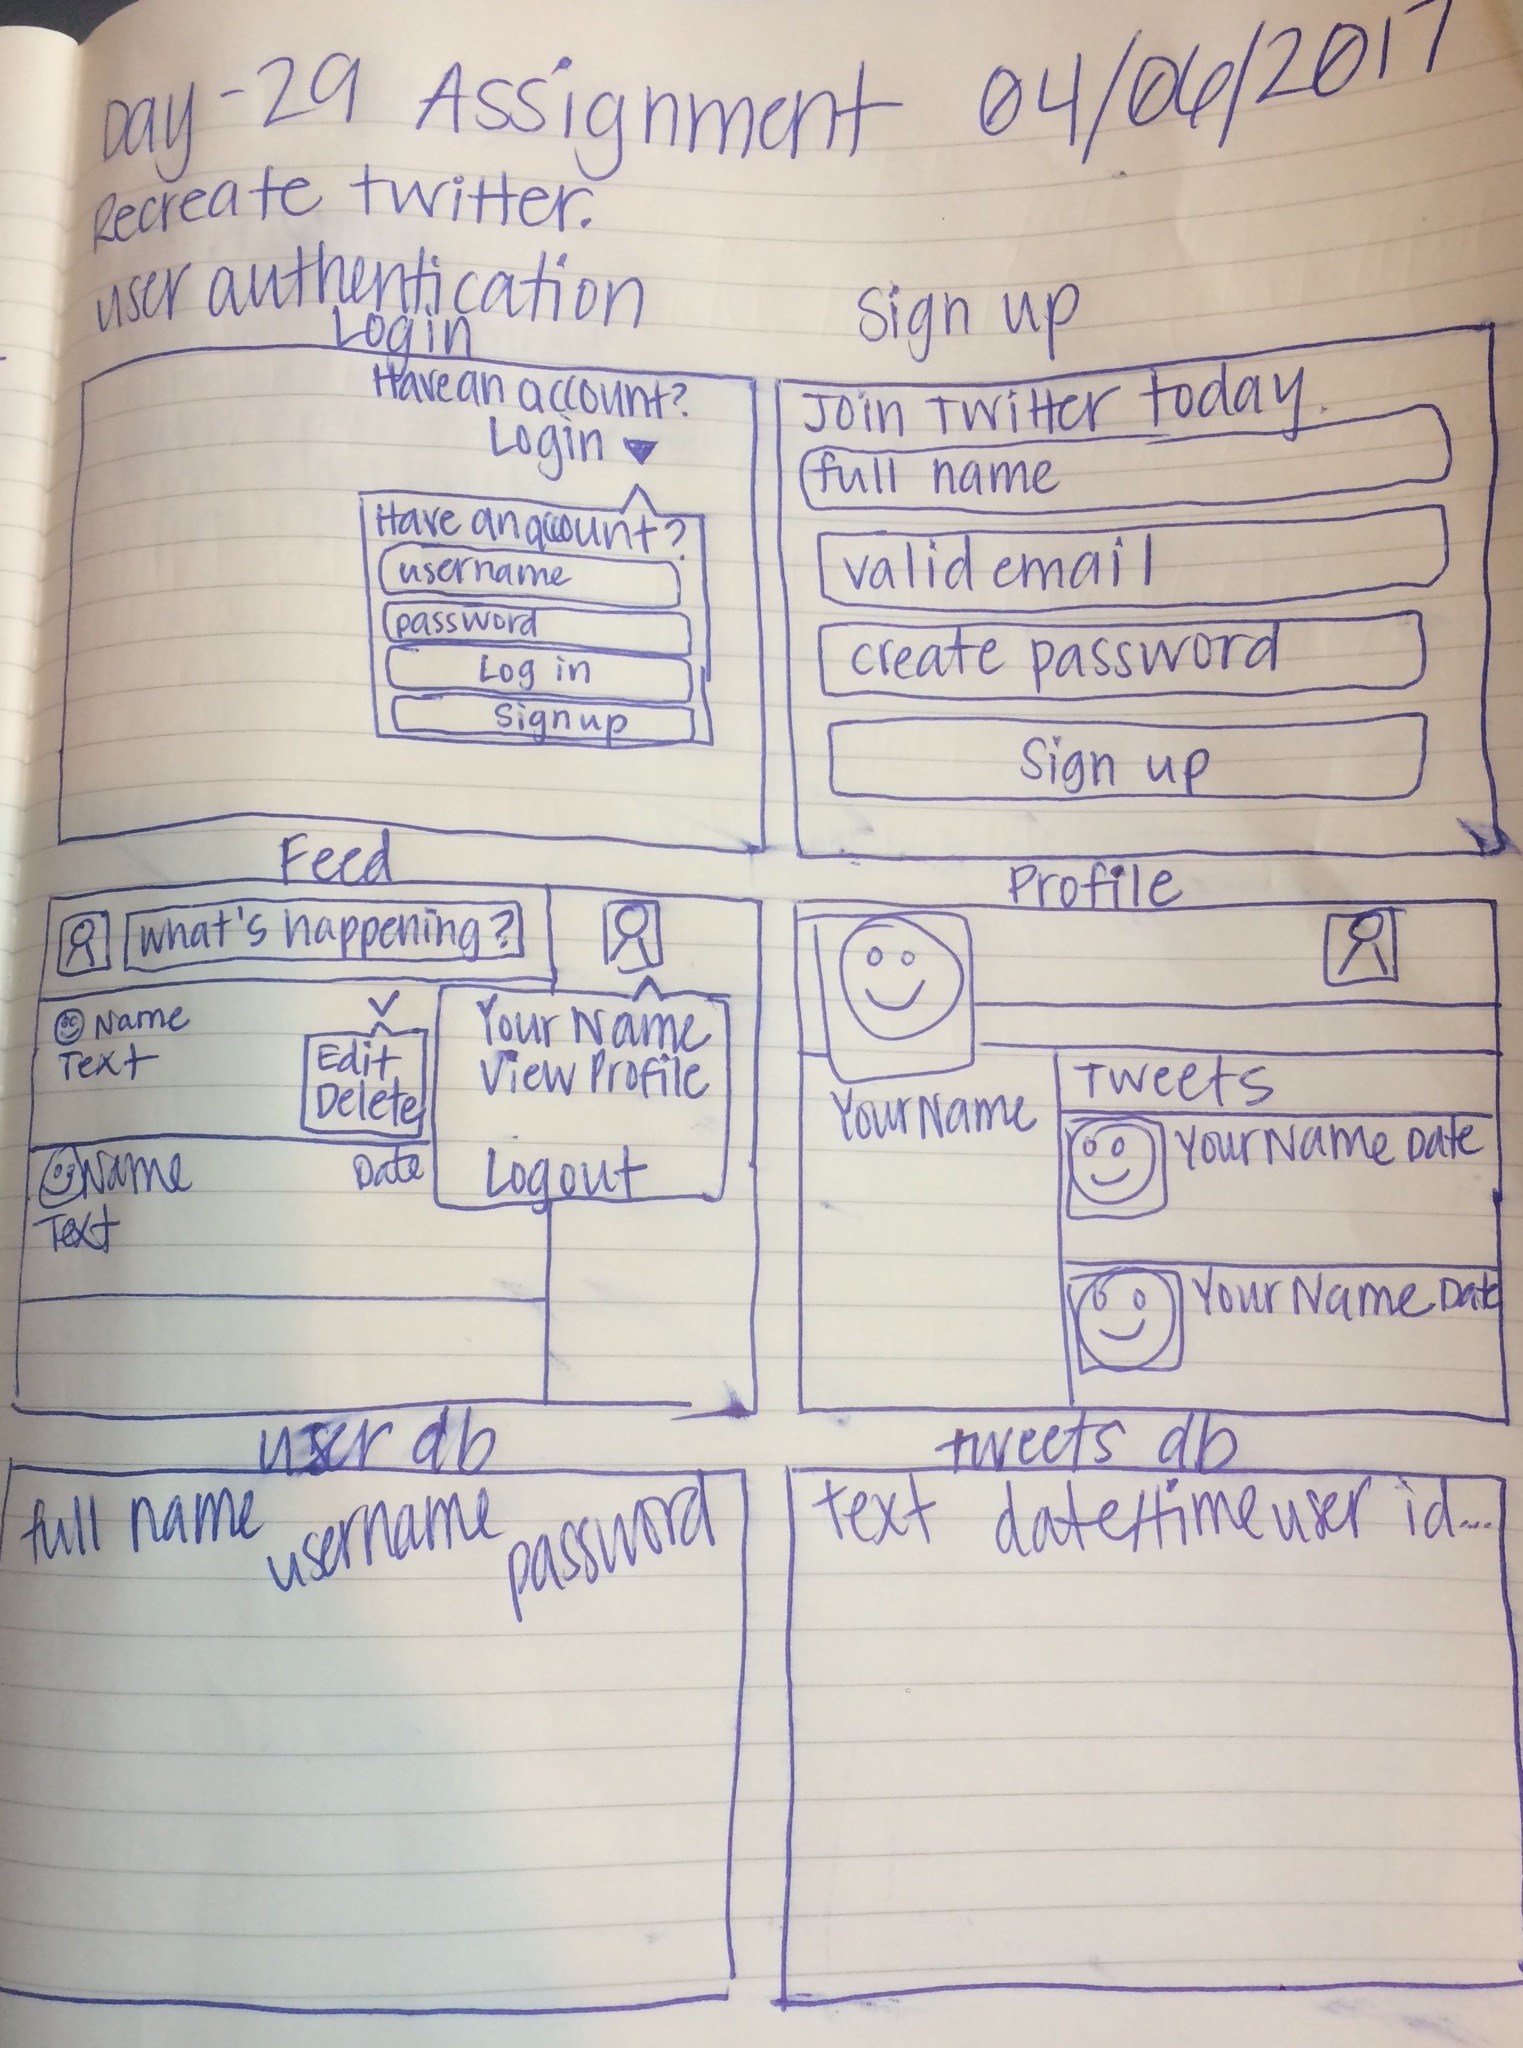 Day-29 Assignment 04/06/2017
Recreate twitter.
user authentication
Login
Have an account?
Login
Have an account?
username
password
Log in
Sign up
Sign up
Join Twitter today.
full name
valid email
create password
Sign up
Feed
what's happening?
Name
Text
Edit
Delete
Your Name
View Profile
Logout
Name Date
Text
Profile
Your Name
Tweets
Your Name Date
Your Name Date
user db
full name username password
tweets db
text date/time user id...